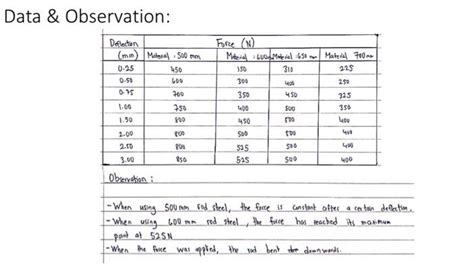 Data & Observation:
Deflection Force (N)
(mm) Material : 500 mm Material : 600mm Material : 650 mm Material 700mm
0.25 450 150 310 225
0.50 600 300 400 250
0.75 700 350 450 325
1.00 750 400 500 350
1.50 800 450 400
2.00 800 500 400
2.50 800 525 500 400
3.00 850 525 500 400
Observation :
- When using 500mm rod steel, the force is constant after a certain deflection.
- When using 600 mm rod steel, the force has reached its maximum
point at 525N
- When the force was applied, the rod bent downwards.